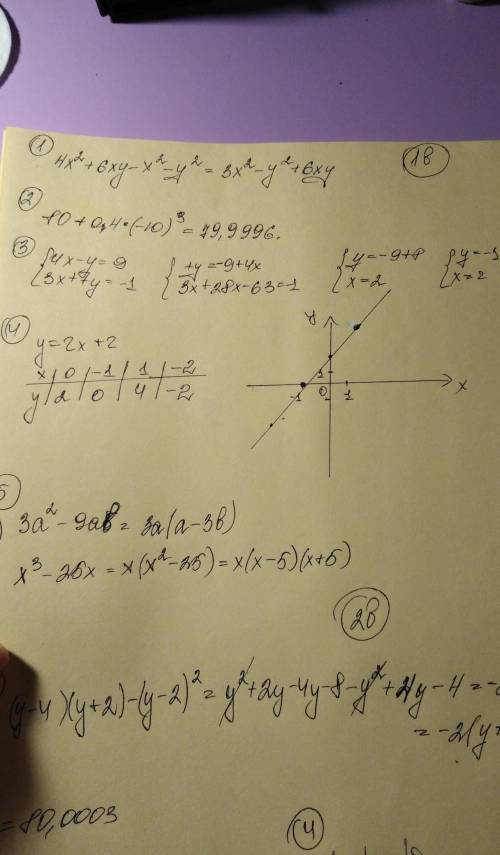 1 4x² + 6xy - x² - y² = 3x² - y² + 6xy
1В
2 80 + 0,4 • (-10)³ = 79,9996.
3 {4x - y = 9 {+y = -9 + 4x {y = -9 + 8 {y = -1
{3x + 7y = -1 {3x + 28x - 63 = -1 {x = 2 {x = 2
4
y = 2x + 2
x | 0 | -1 | 1 | -2
y | 2 | 0 | 4 | -2
y
1
-1 0 1 x
5
) 3a² - 9ab = 3a(a - 3b)
x³ - 25x = x(x² - 25) = x(x - 5)(x + 5)
2В
(y - 4)(y + 2) - (y - 2)² = y² + 2y - 4y - 8 - y² + 4y - 4 =
= -2(y
= 80,0003
4